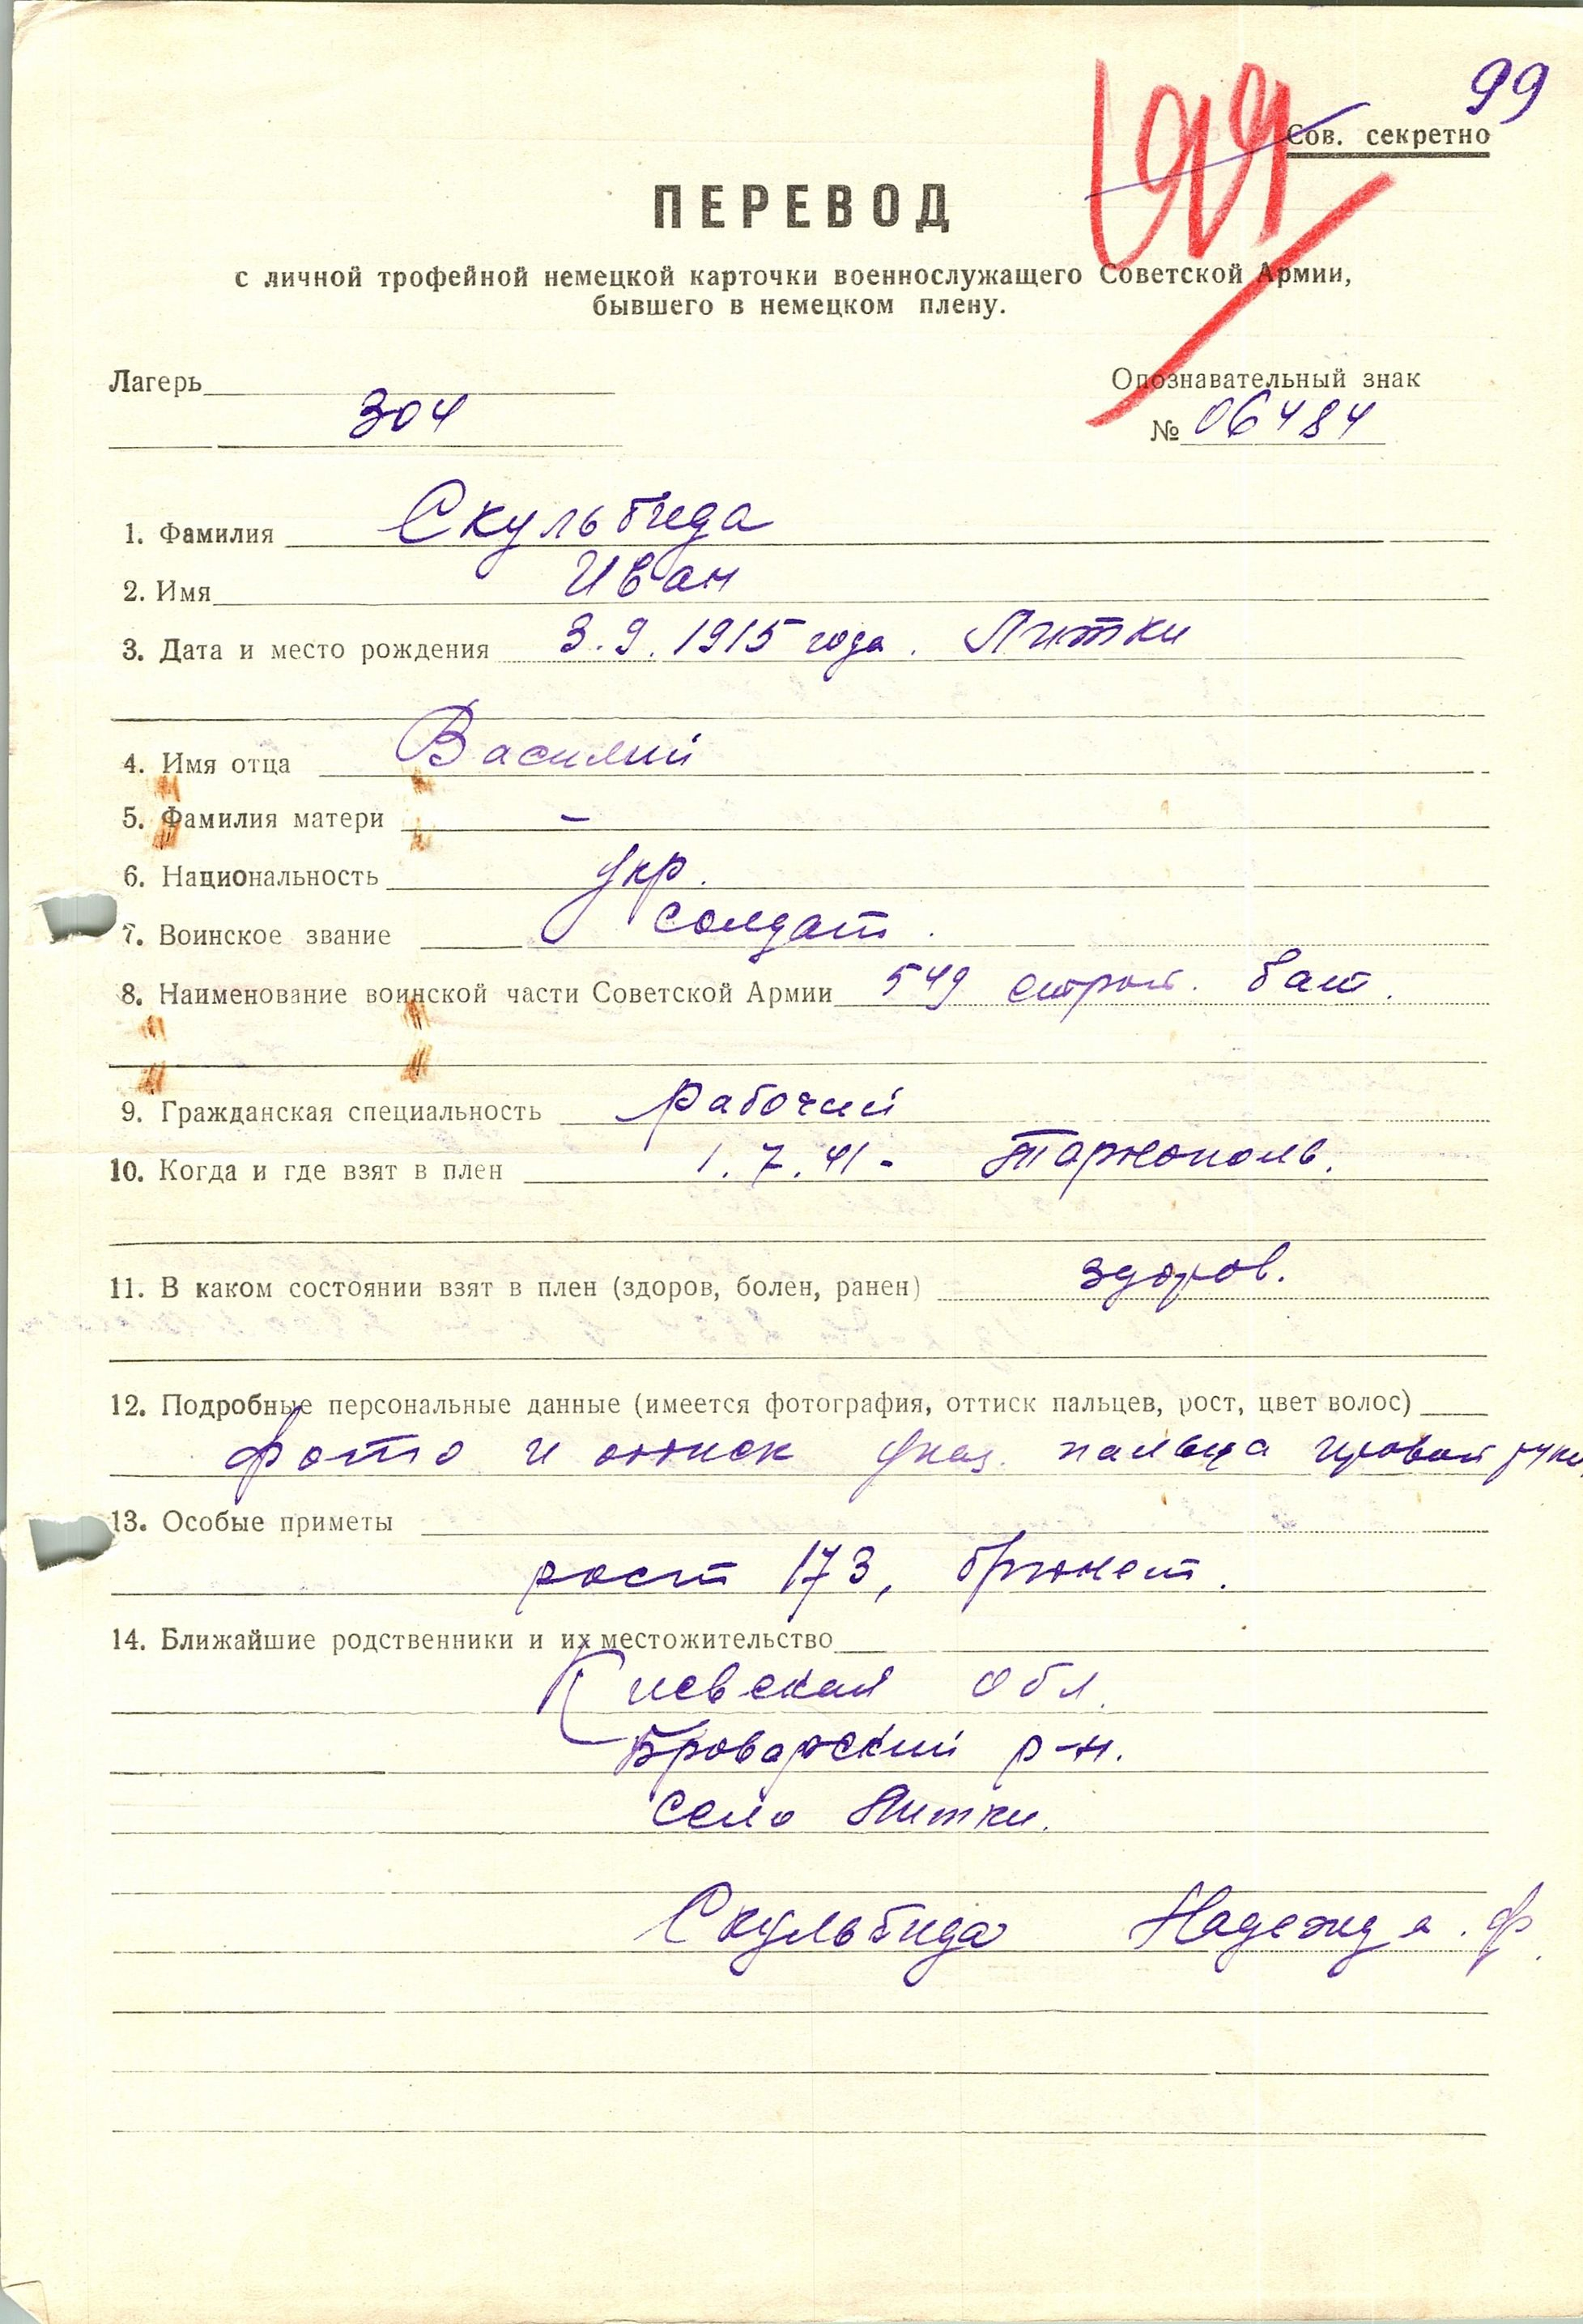 99
Сов. секретно
ПЕРЕВОД
с личной трофейной немецкой карточки военнослужащего Советской Армии,
бывшего в немецком плену.
Лагерь
304
Опознавательный знак
№ 06484
1. Фамилия Скульбида
2. Имя Иван
3. Дата и место рождения 3.9.1915 года. Литки
4. Имя отца Василий
5. Фамилия матери –
6. Национальность Укр.
7. Воинское звание солдат.
8. Наименование воинской части Советской Армии 549 строит. бат.
9. Гражданская специальность рабочий
10. Когда и где взят в плен 1.7.41 - Тарнополь.
11. В каком состоянии взят в плен (здоров, болен, ранен) здоров.
12. Подробные персональные данные (имеется фотография, оттиск пальцев, рост, цвет волос)
фото и оттиск указ. пальца правой руки
13. Особые приметы
рост 173, брюнет.
14. Ближайшие родственники и их местожительство
Киевская обл.
Броварский р-н.
село Литки.
Скульбида Надежда. Ф.